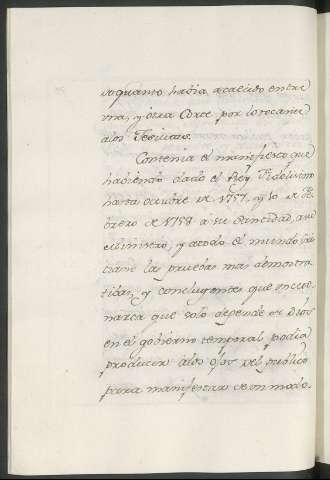 do quanto havia acahecido entre
una, y otra Corte por lo tocante
a los Jesuitas.
Contenia el manifiesto que
haviendo dado el Rey Fidelisimo
hasta Octubre de 1757, y 10 de Fe
brero de 1758 a su Santidad, a su
Ministerio, y a todo el mundo
las pruebas mas demostra
tibas, y concluyentes que un Mo
narca que solo depende de Dios
en el gobierno temporal podia
producir a los ojos del público
para manifestar de un modo